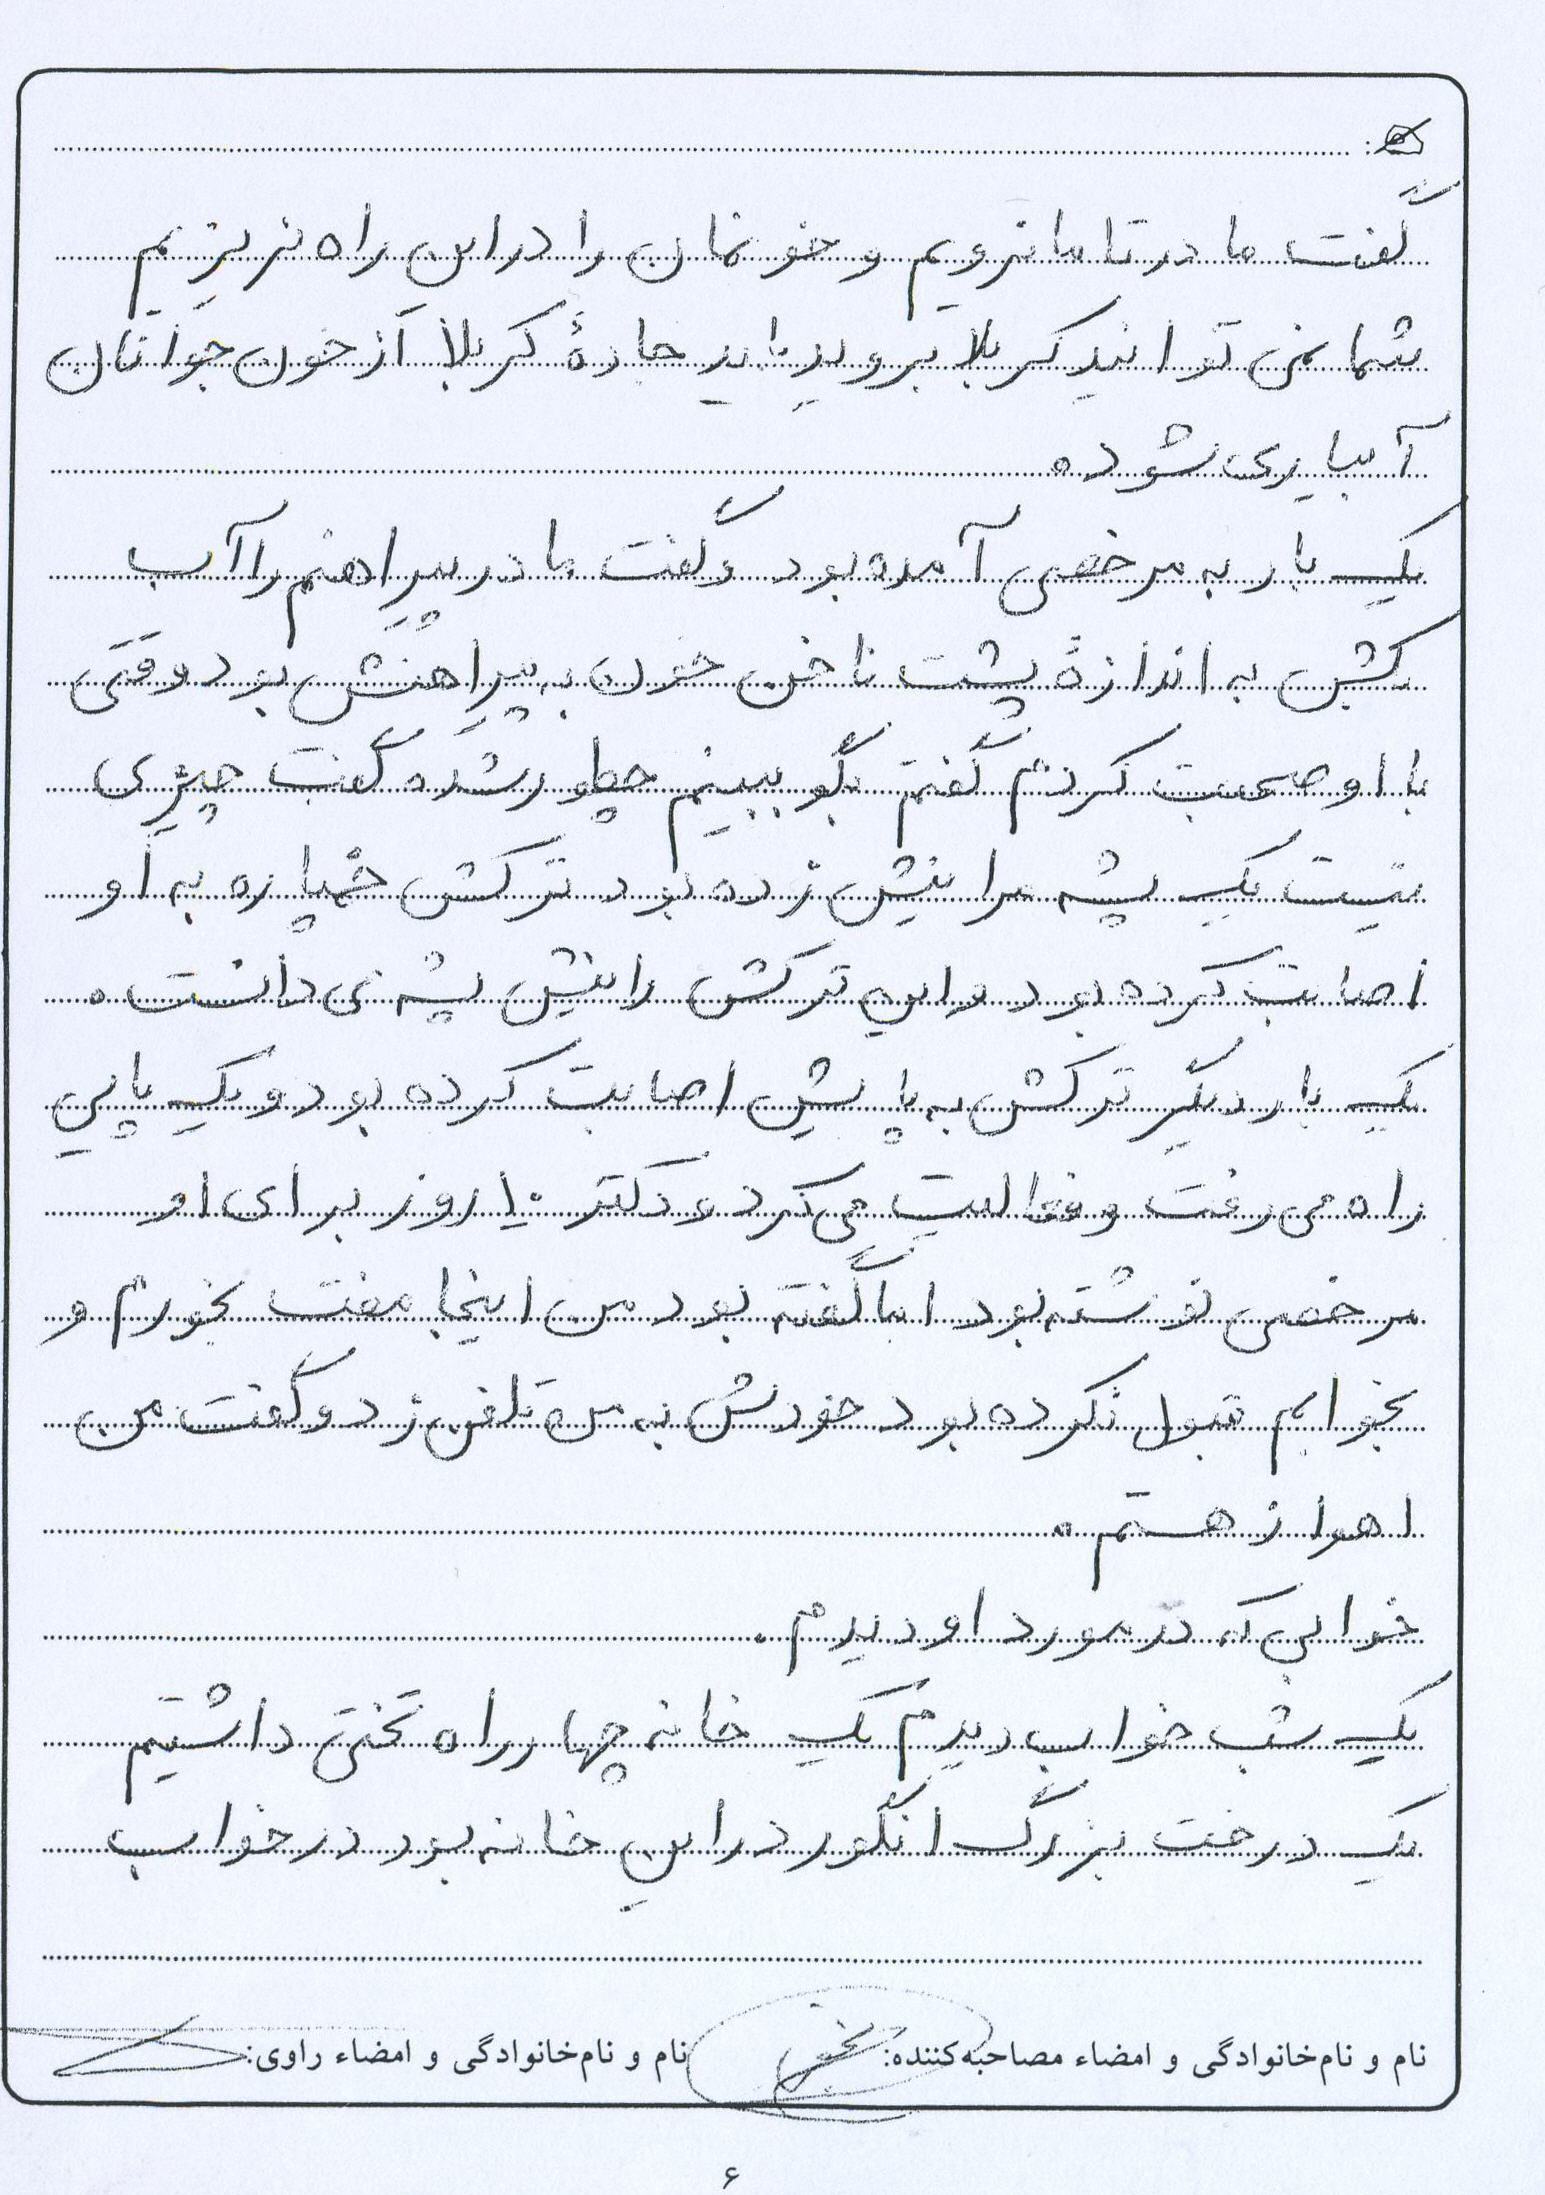 گفت مادر تا ما نرویم و خونمان را در این راه نریزیم
شما نمی توانید کربلا بروید باید جادهٔ کربلا از خون جوانان
آبیاری شود.
یک بار به مرخصی آمده بود و گفت مادر پیراهنم را آب
کش به اندازهٔ پشت ناخن خون به پیراهنش بود وقتی
با او صحبت کردم گفتم بگو ببینم چطور شده گفت چیزی
نیست یک پشه مرا نیش زده بود ترکش خمپاره به او
اصابت کرده بود و این ترکش را نیش پشه می دانست.
یک بار دیگر ترکش به پایش اصابت کرده بود و یک پایی
راه می رفت و فعالیت می کرد و دکتر ۱۰ روز برای او
مرخصی نوشته بود اما گفته بود من اینجا مفت بخورم و
بخوابم قبول نکرده بود خودش به من تلفن زد و گفت من
اهواز هستم.
خوابی که در مورد او دیدم.
یک شب خواب دیدم یک خانه چهارراه تختی داشتیم
یک درخت بزرگ انگور در این خانه بود در خواب
نام و نام‌خانوادگی و امضاء مصاحبه‌کننده: نام و نام‌خانوادگی و امضاء راوی:
۶